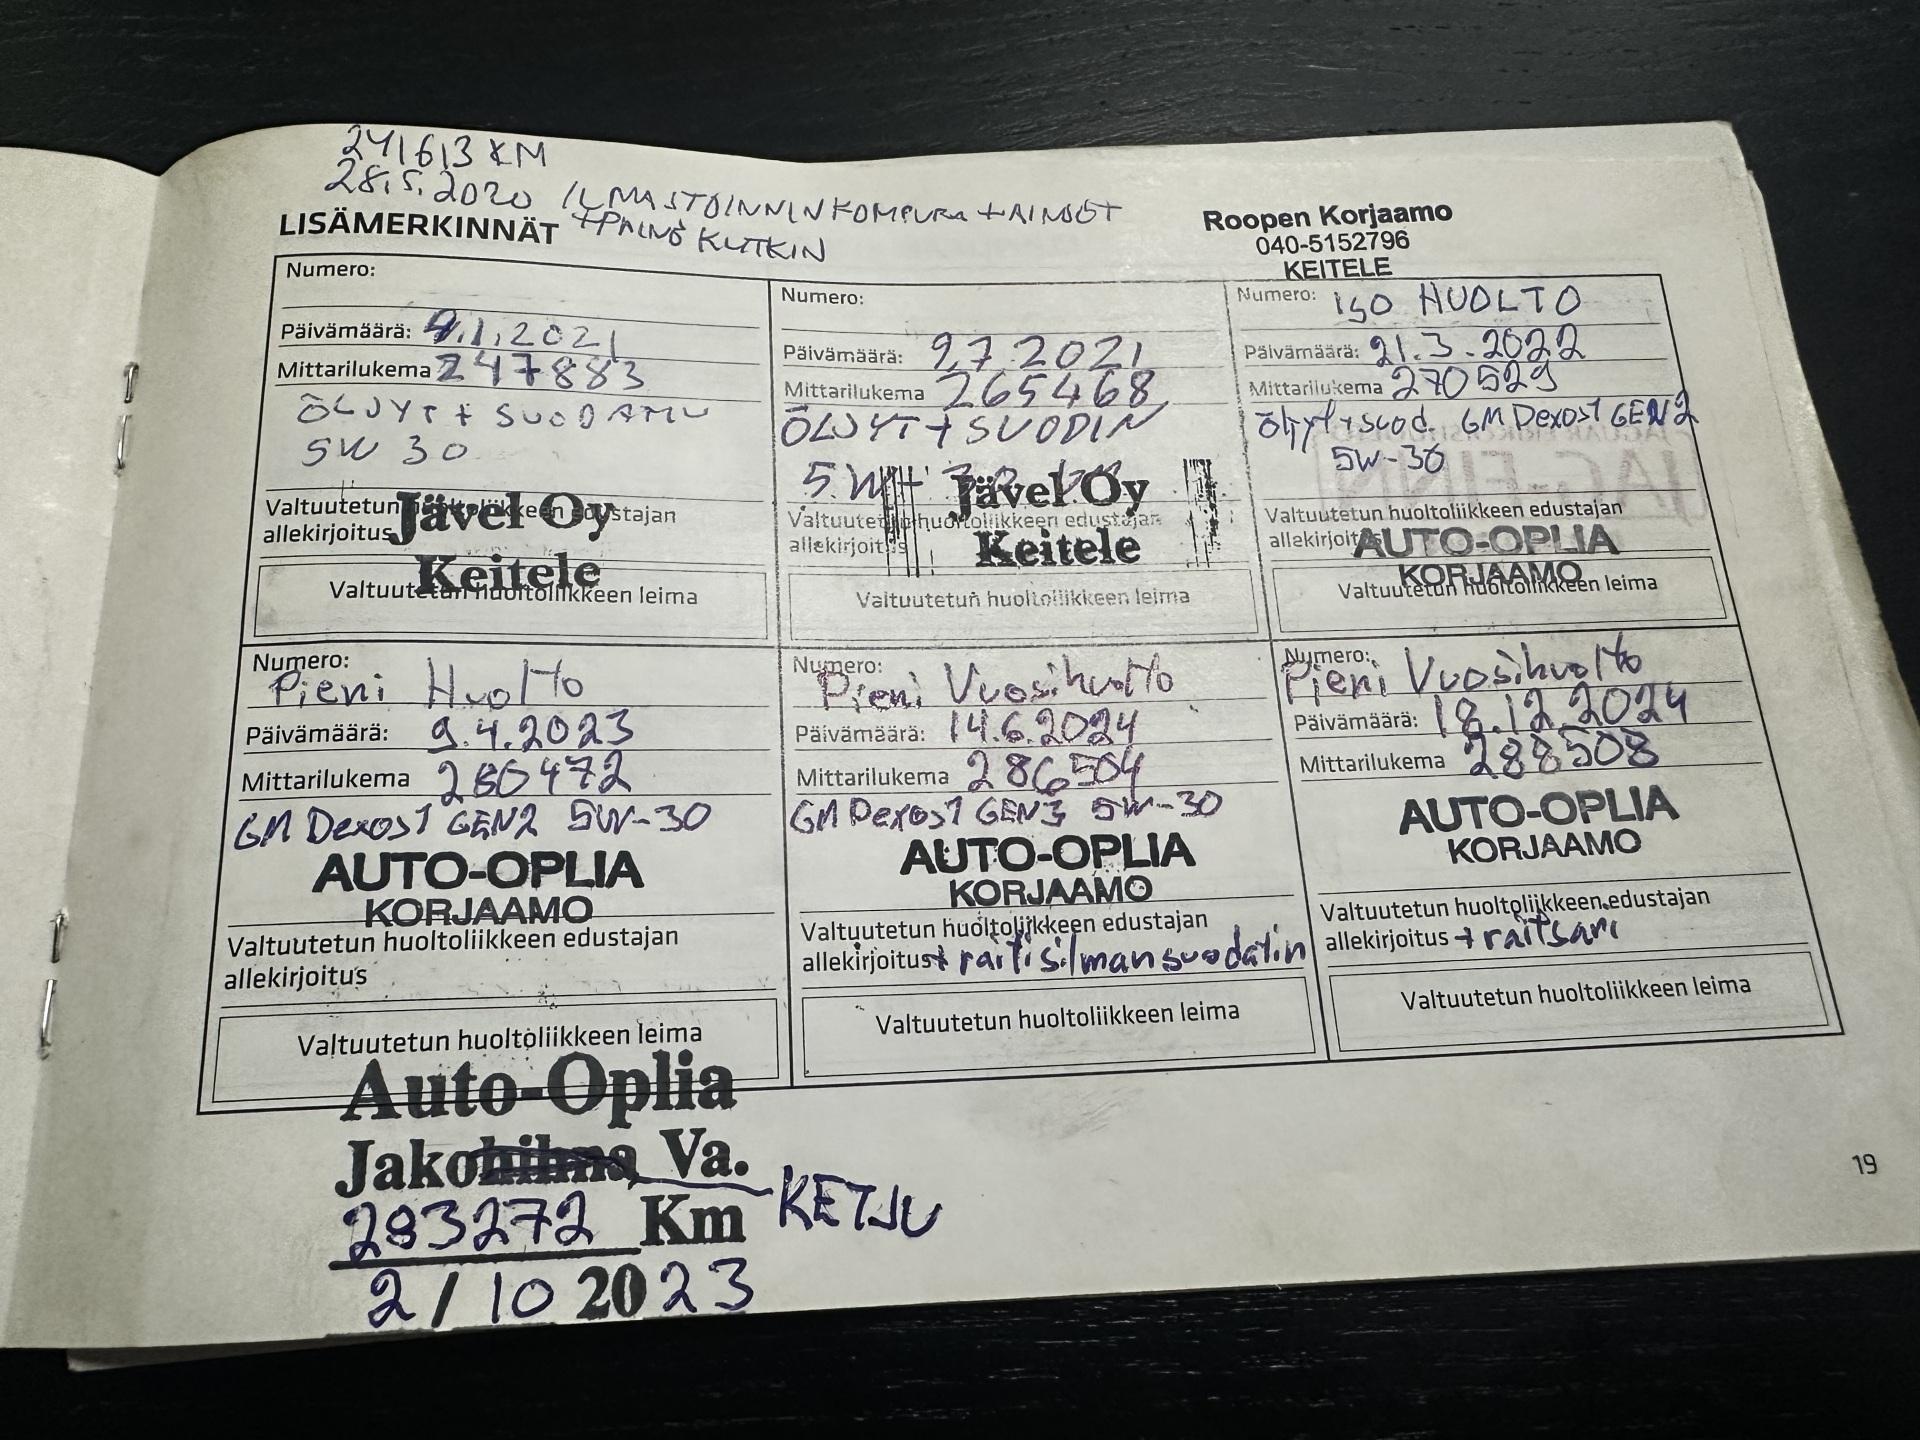 241613 KM
28.5.2020 ILMASTOINNIN KOMPURA + AINEET
+ PAINE KYTKIN
LISÄMERKINNÄT
Roopen Korjaamo
040-5152796
KEITELE
Numero:
Päivämäärä: 4.1.2021
Mittarilukema 247883
ÖLJYT + SUODATIN
5W 30
Valtuutetun huoltoliikkeen edustajan
allekirjoitus
Jävel Oy
Keitele
Valtuutetun huoltoliikkeen leima
Numero:
Päivämäärä: 9.7.2021
Mittarilukema 265468
ÖLJYT + SUODIN
5W-30
Jävel Oy
Keitele
Valtuutetun huoltoliikkeen edustajan
allekirjoitus
Valtuutetun huoltoliikkeen leima
Numero: ISO HUOLTO
Päivämäärä: 21.3.2022
Mittarilukema 270529
öljyt + suod. GM Dexos1 GEN2
5W-30
JAG-FINN
Valtuutetun huoltoliikkeen edustajan
allekirjoitus
AUTO-OPLIA
KORJAAMO
Valtuutetun huoltoliikkeen leima
Numero:
Pieni Huolto
Päivämäärä: 9.4.2023
Mittarilukema 280472
GM Dexos1 GEN2 5W-30
AUTO-OPLIA
KORJAAMO
Valtuutetun huoltoliikkeen edustajan
allekirjoitus
Valtuutetun huoltoliikkeen leima
Numero:
Pieni Vuosihuolto
Päivämäärä: 14.6.2024
Mittarilukema 286504
GM Dexos1 GEN3 5W-30
AUTO-OPLIA
KORJAAMO
Valtuutetun huoltoliikkeen edustajan
allekirjoitus + raitisilmansuodatin
Valtuutetun huoltoliikkeen leima
Numero:
Pieni Vuosihuolto
Päivämäärä: 18.12.2024
Mittarilukema 288508
AUTO-OPLIA
KORJAAMO
Valtuutetun huoltoliikkeen edustajan
allekirjoitus + raitsari
Valtuutetun huoltoliikkeen leima
Auto-Oplia
Jakohihna, Va. KETJU
283272 Km
2 / 10 2023
19